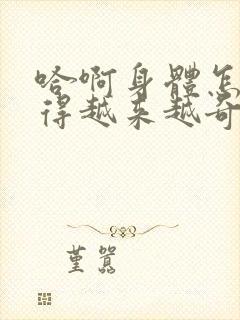 哈啊身體怎
得越来越奇
堇嚣